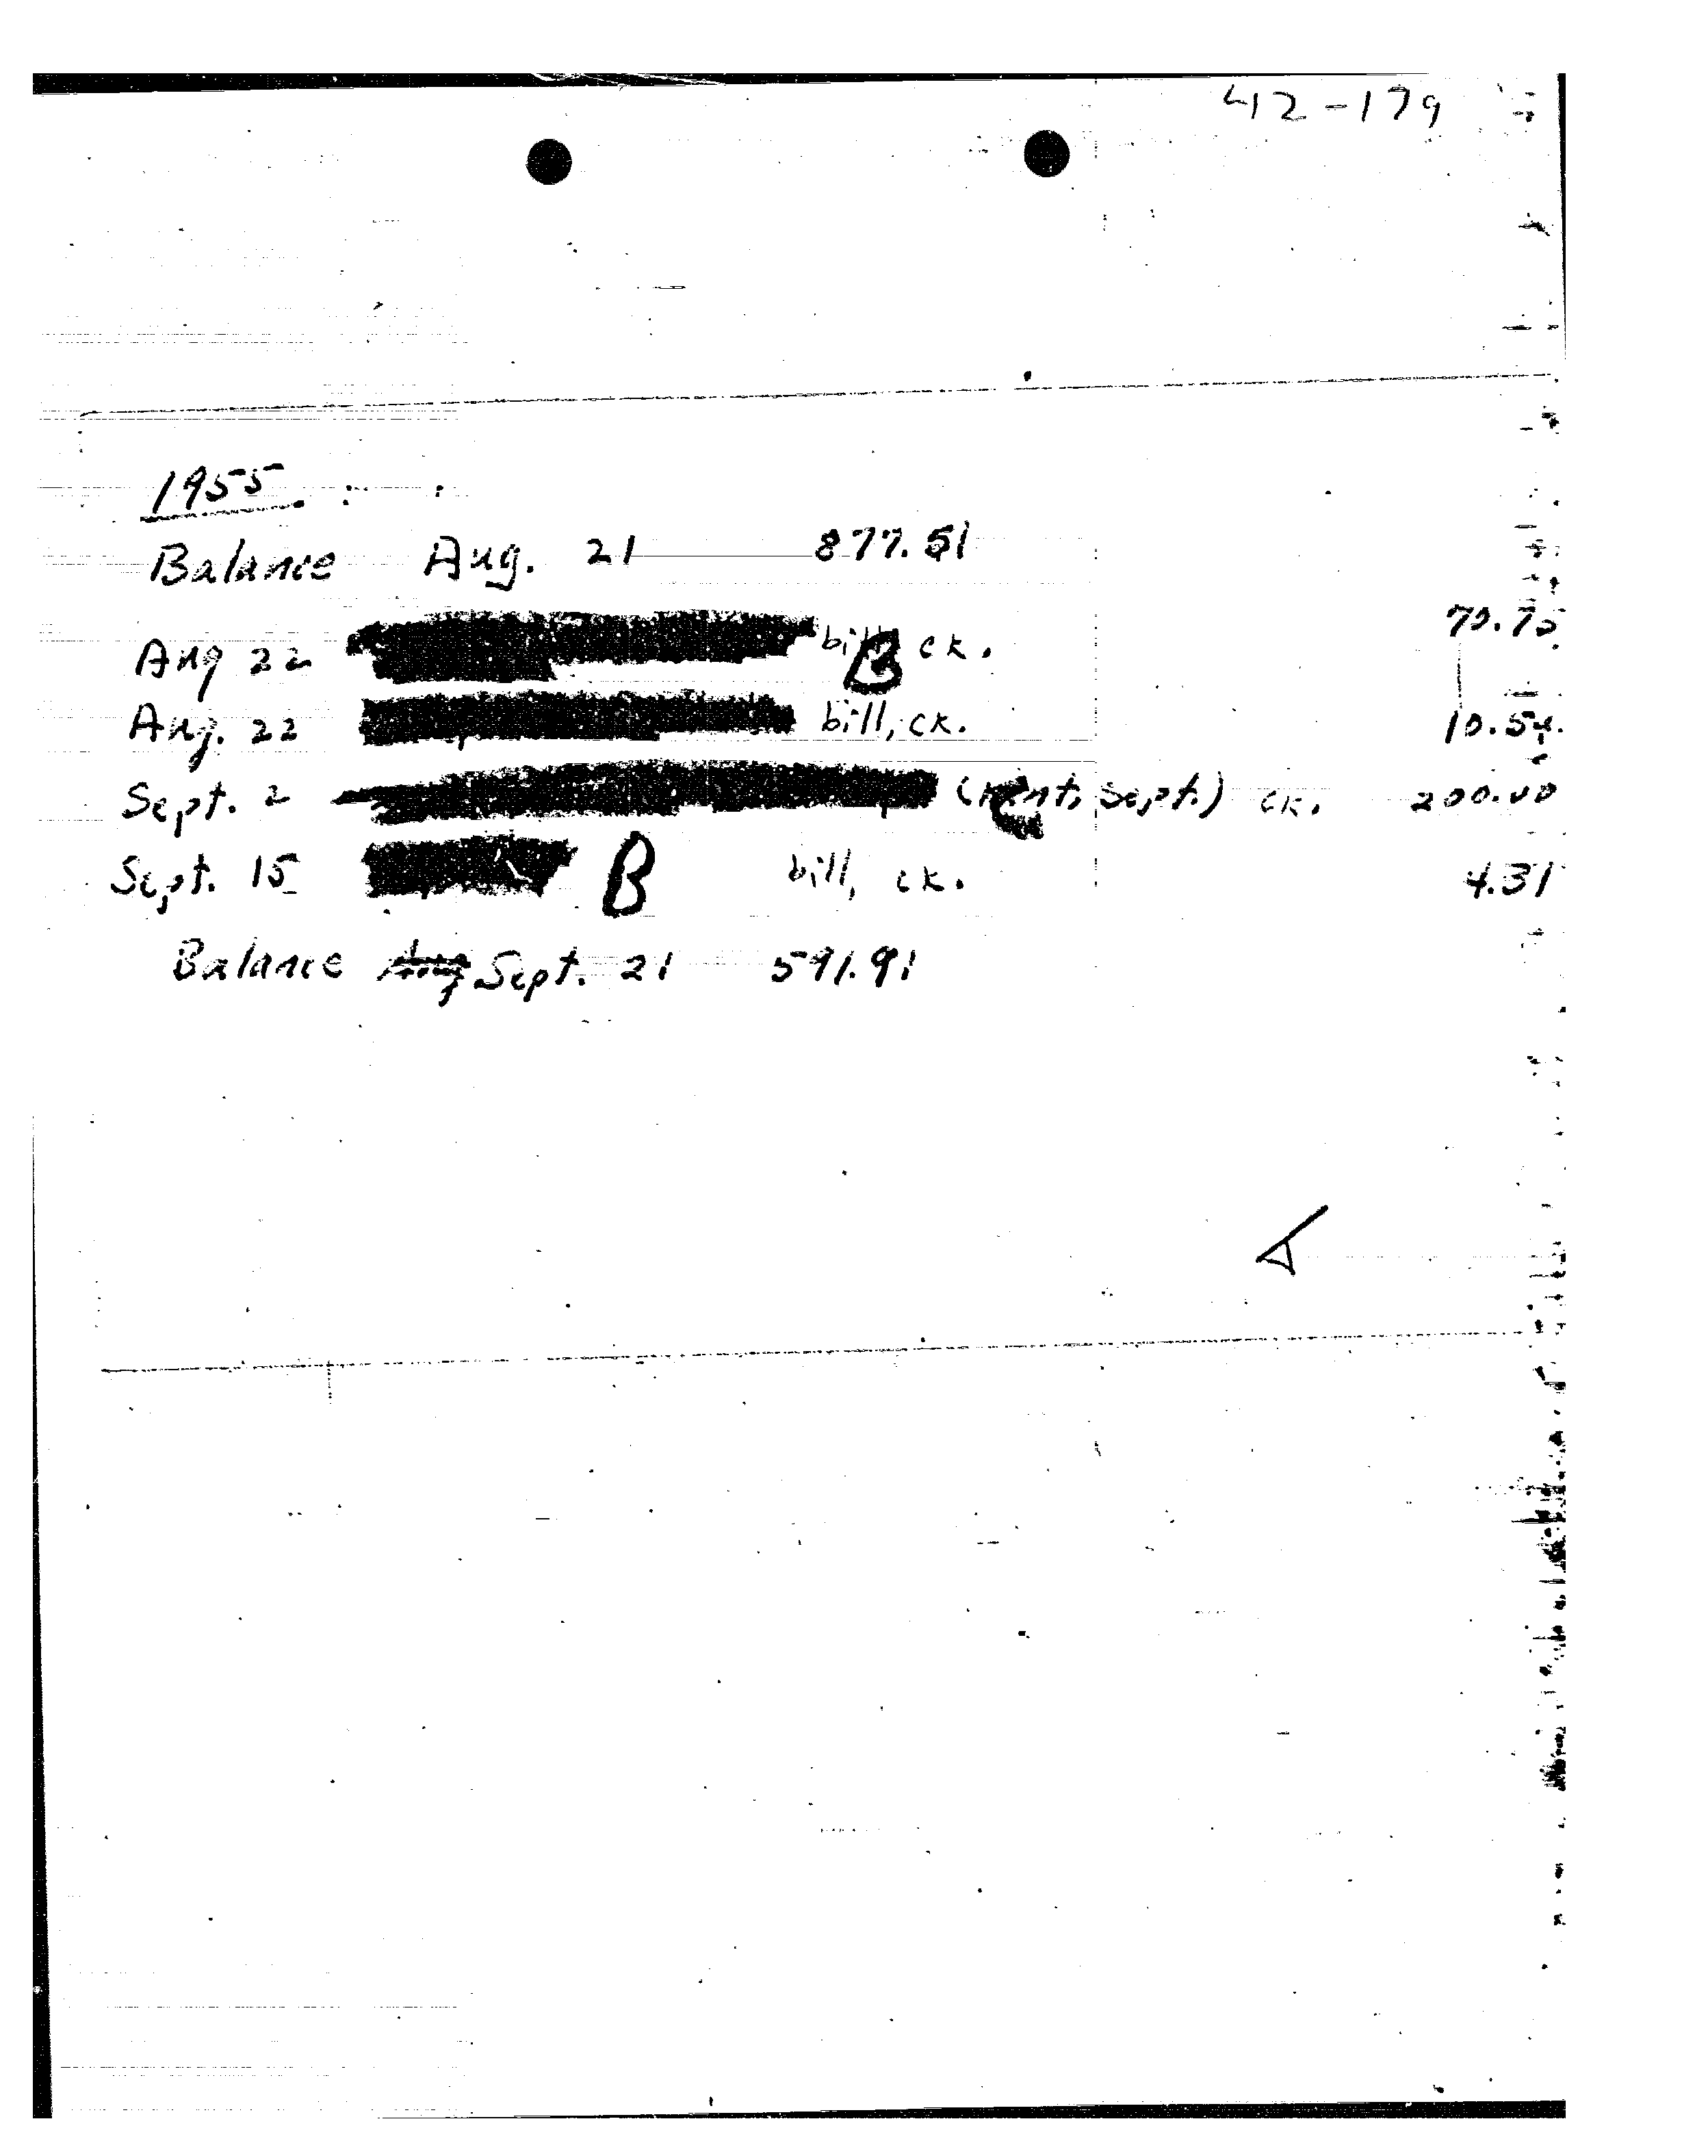 42-179
1955.
Balance Aug. 21 877.51
Aug 22 bill, ck. 70.75
B
Aug. 22 bill, ck. 10.54
Sept. 2 (Rent, Sept.) ck. 200.00
Sept. 15 B bill, ck. 4.31
Balance Aug Sept. 21 591.91
A